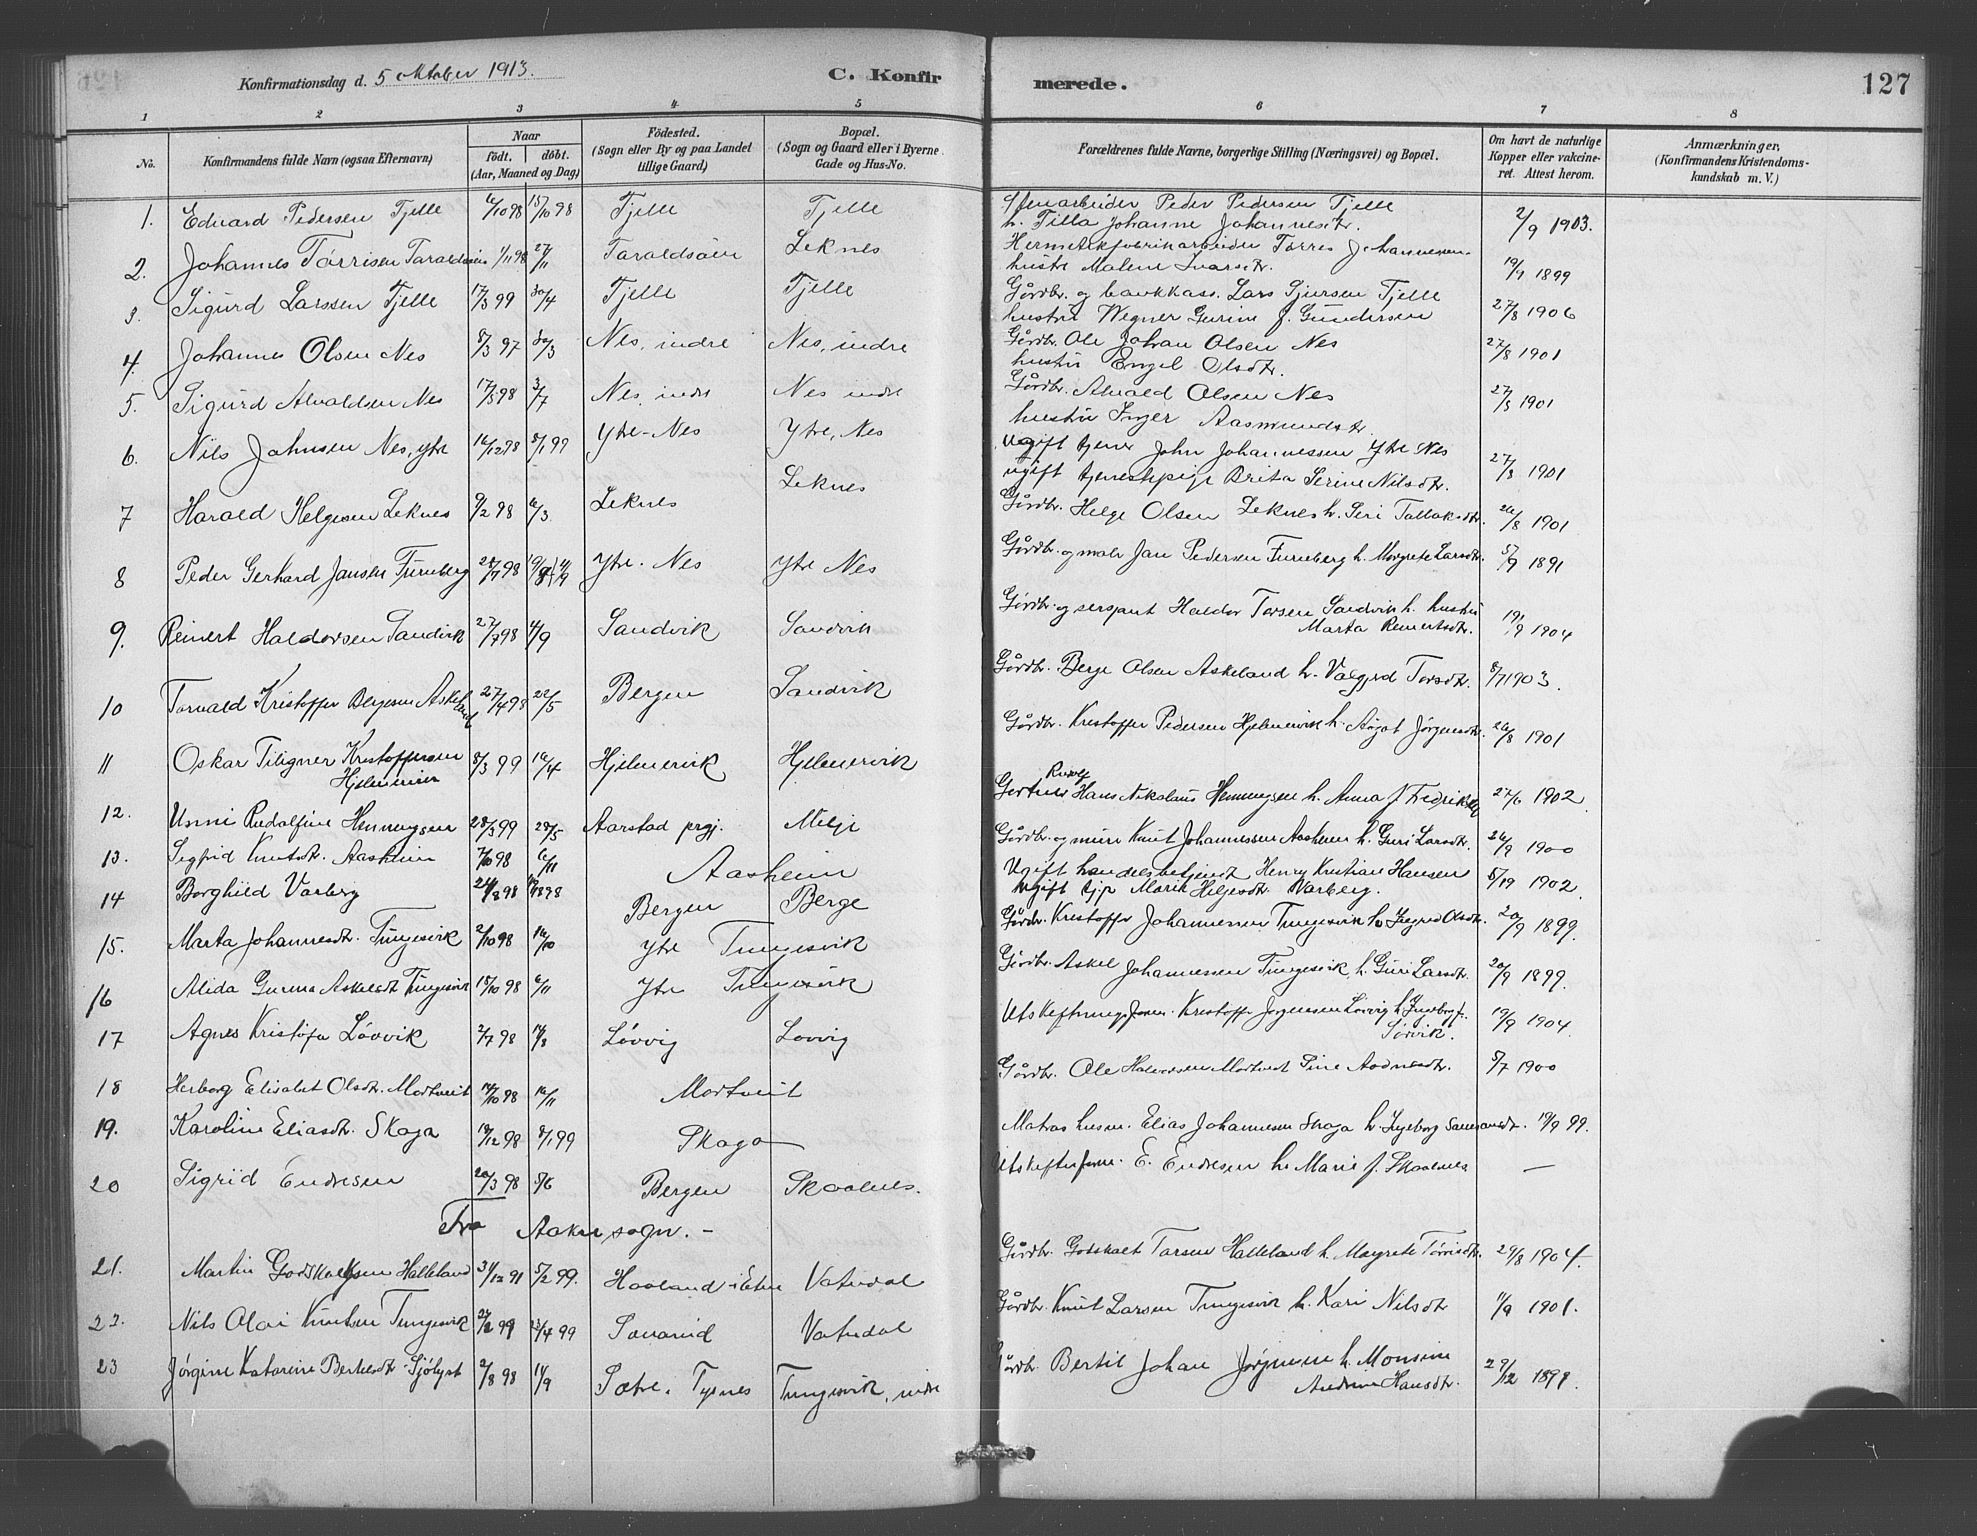 Konfirmationsdag d. 5 oktober 1913. C. Konfirmerede. 127
1 2 3 4 5 6 7 8
No. Konfirmandens fulde Navn (ogsaa Efternavn) Naar födt. döbt. (Aar, Maaned og Dag) Födested. (Sogn eller By og paa Landet tillige Gaard) Bopæl. (Sogn og Gaard eller i Byerne Gade og Hus-No. Forældrenes fulde Navne, borgerlige Stilling (Næringsvei) og Bopæl. Om havt de naturlige Kopper eller vakcineret. Attest herom. Anmærkninger, (Konfirmandens Kristendomskundskab m. V.)
1. Edvard Pedersen Fjelle 6/10 98 15/10 98 Fjelle Fjelle Peder Pedersen Fjelle h. Tilla Johanne Johannesdtr. 2/9 1903.
2. Johannes Tørrisen 1/11 98 27/11 Leknes Hermetikfabrikarbeider Tørres Johannessen hustr Malene Ivarsdtr. 19/9 1899
3. Sigurd Larssen Fjelle 17/3 99 30/4 Fjelle Fjelle Gårdbr. og bankkass. Lars Sjursen Fjelle hustru Wegner Gurine f. Gundersen 27/8 1906
4. Johannes Olsen Nes 8/3 97 30/3 Nes, indre Nes, indre Gårdbr. Ole Johan Olsen Nes hustru Engel Olsdtr. 27/8 1901
5. Sigurd Alvaldsen Nes 17/5 98 3/7 Nes, indre Nes indre Gårdbr. Alvald Olsen Nes hustru Inger Aasmundsdtr. 27/8 1901
6. Nils Johnsen Nes, ytre 16/12 98 8/1 99 Ytre-Nes Ytre, Nes Ugift tjener John Johannessen Ytre Nes ugift tjenestepige Brita Serine Nilsdtr. 27/8 1901
7 Harald Helgesen Leknes 9/2 98 6/3 Leknes Leknes Gårdbr. Helge Olsen Leknes h. Siri Tollaksdtr. 26/8 1901
8 Peder Gerhard Jansen Furuberg 28/7 98 Ytre-Nes Ytre Nes Gårdbr. og maler Jan Pedersen Furuberg h. Margrete Larsdtr. 5/9 1891
9. Reinert Haldorsen Sandvik 27/7 98 4/9 Sandvik Sandvik Gårdbr. og sersjant Haldor Torsen Sandvik h. hustru Marta Reinertsdtr. 19/9 1904
10 Torvald Kristoffer Bergesen Askeland 27/4 98 22/5 Bergen Sandvik Gårdbr. Berge Olsen Askeland h. Valgjerd Torsdtr. 8/7 1903.
11 Oskar Kristoffersen Hjelmervik 8/3 99 16/4 Hjelmervik Hjelmervik Gårdbr. Kristoffer Pedersen Hjelmervik h. Jørgensdtr. 26/8 1901
12. Unni Rudolfine Henningsen 28/3 99 28/5 Aarstad prgj. Milje Gartner Hans Nikolaus Henningsen h. Anna f. 27/6 1902
13. Sigfrid Knutsdtr. Aasheim 7/10 98 6/11 Aasheim Gårdbr. og murer Knut Johannessen Aasheim h. Guri Larsdtr. 26/9 1900
14 Borghild Varberg 24/8 98 Bergen Berge Ugift handelsbetjent Henry Kristian Hansen Ugift tjp Marie Helgesdtr. Varberg. 1902
15. Marta Johannesdtr. Tungesvik 2/10 98 16/10 Ytre Tungesvik Gårdbr. Kristoffer Johannessen Tungesvik h. Olsdtr. 20/9 1899.
16 Alida Gurina Askelsdtr Tungesvik 15/10 98 6/11 Ytre Tungesvik Gårdbr. Askel Johannessen Tungesvik h. Guri Larsdtr. 20/9 1899.
17 Agnes Kristofa Løvvik 2/7 98 14/8 Løvvig Lovvig Utskiftningsform. Kristoffer Jørgensen Løvvig h. Ingeborg f. Sørvik. 19/9 1904.
18 Herborg Elisabet Olsdtr. Mortveit 14/10 98 16/11 Mortveit Gårdbr. Ole Halvorsen Mortveit Sine Aadnesdtr. 5/7 1900
19. Karoline Eliasdtr. Skaga 18/12 98 8/1 99 Skaga Matros husm. Elias Johannesen Skaga h. Ingeborg 19/9 99.
20 Sigrid Endresen 20/3 98 5/6 Bergen Skaalnes. Utskifteform. E. Endresen h. Marie f. Skaalnes —
Fra Aakre sogn. —
21. Martin Godskalksen Halleland 31/12 91 5/2 99. Haaland i Etne Vatndal Gårdbr. Godskalk Torsen Halleland h. Margrete Tørrisdtr. 29/8 1904.
22. Nils Olai Knutsen Tungesvik 99 23/4 99 Vatndal Gårdbr. Knut Larsen Tungesvik h. Kari Nilsdtr 11/9 1901.
23 Jørgine Katarine Bertelsdtr. Sjølyst 2/8 98 11/9 Sætre, Tysnes Tungesvik, indre Gårdbr. Bertil Johan Jørgensen h. Monsine Andrea Hansdtr. 29/12 1898.